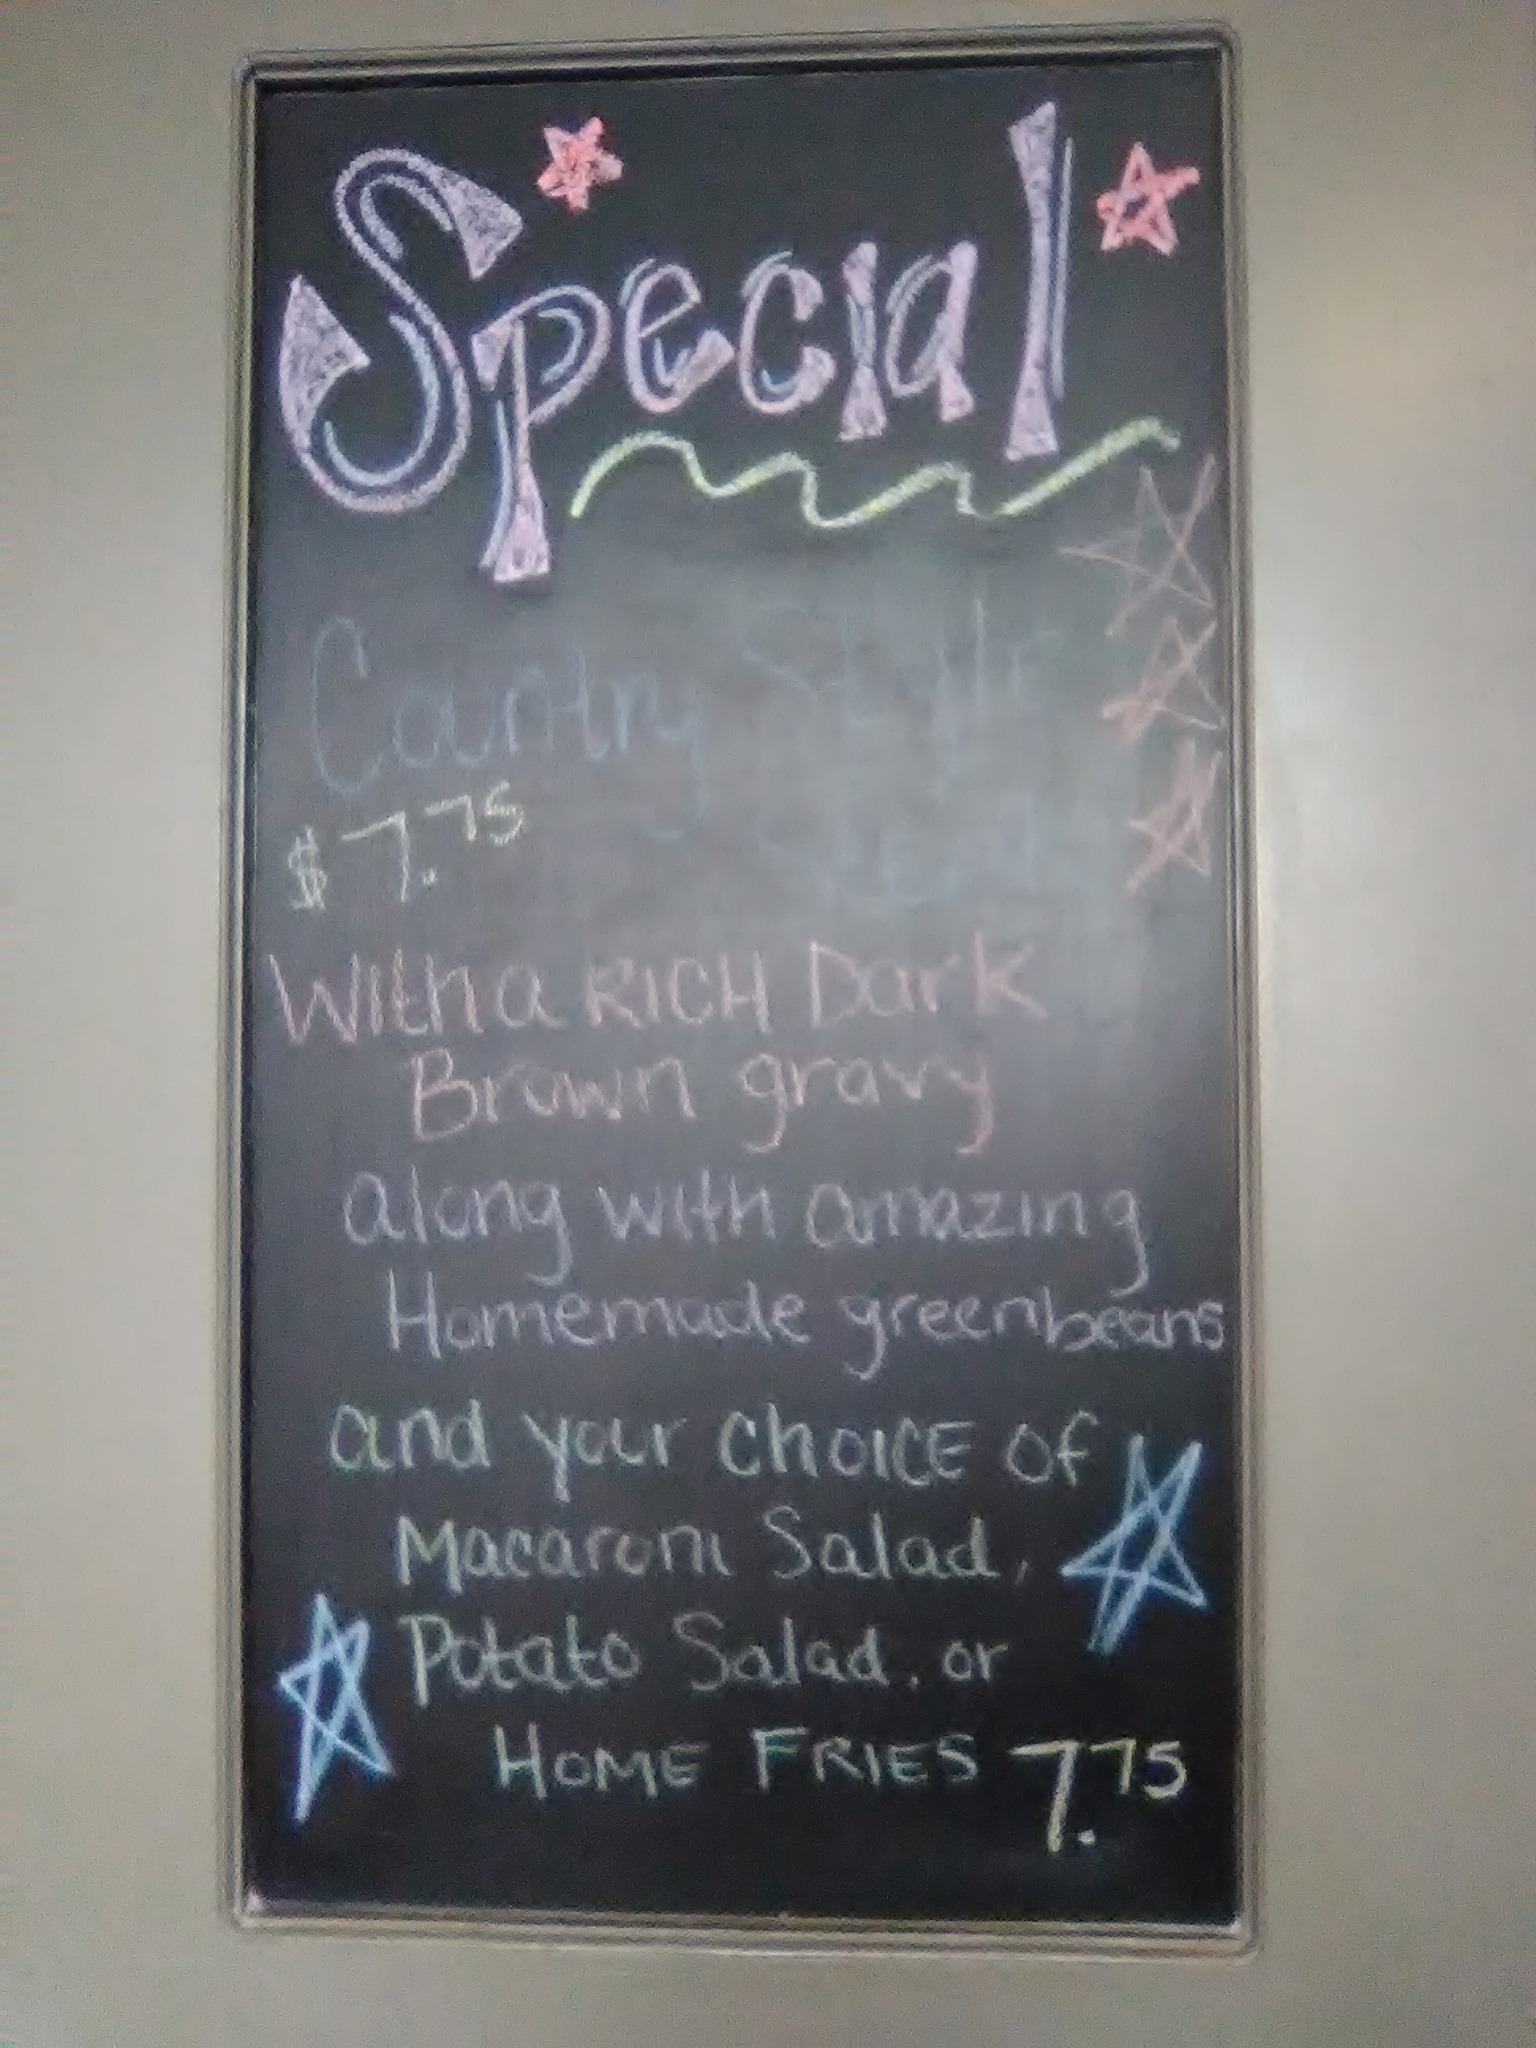 Special
Country Style
$7.75 Steak
With a RICH Dark
Brown gravy
along with amazing
Homemade greenbeans
and your CHOICE of
Macaroni Salad,
Potato Salad, or
HOME FRIES 7.75